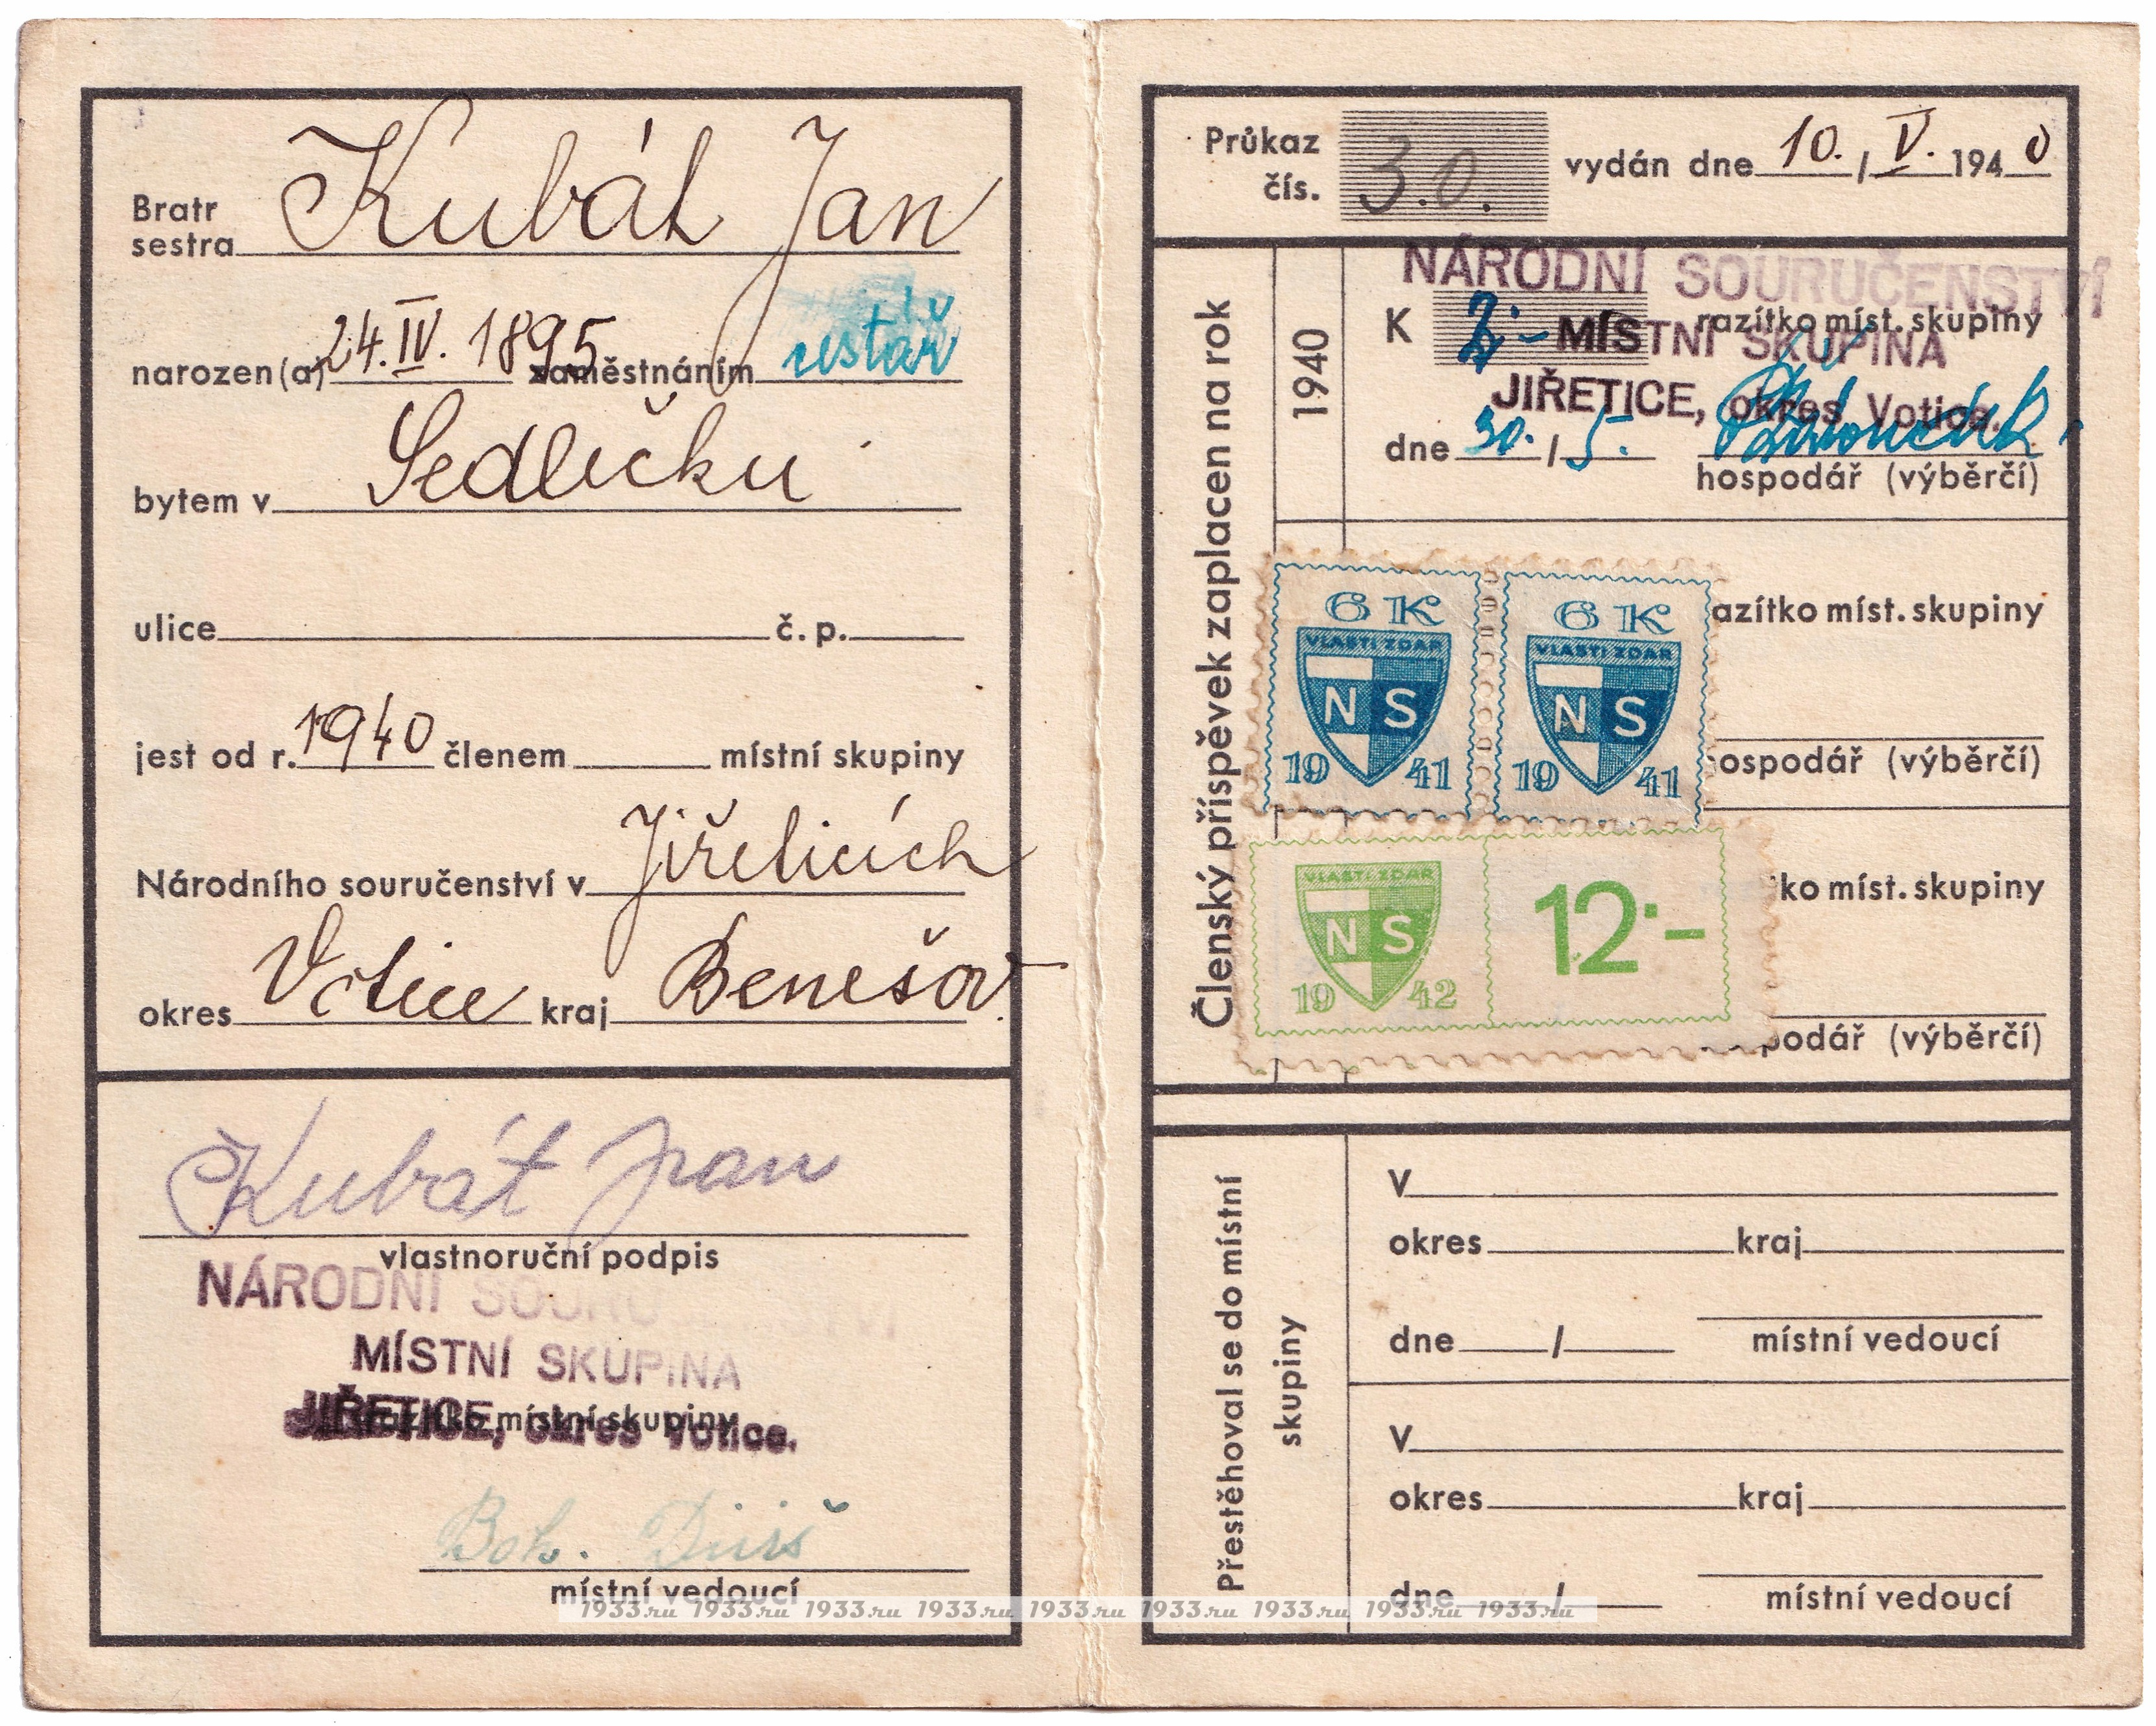 Bratr
sestra Kubát Jan
narozen(a) 24. IV. 1895 zaměstnáním cestář
bytem v Sedlečku
ulice č. p.
jest od r. 1940 členem místní skupiny
Národního souručenství v Jiřeticích
okres Votice kraj Benešov
Kubát Jan
vlastnoruční podpis
NÁRODNÍ SOURUČENSTVÍ
MÍSTNÍ SKUPINA
JIŘETICE, okres Votice.
razítko místní skupiny
Boh.
místní vedoucí
Průkaz
čís. 30. vydán dne 10. / V. 1940
Členský příspěvek zaplacen na rok
1940
NÁRODNÍ SOURUČENSTVÍ
MÍSTNÍ SKUPINA
JIŘETICE, okres Votice.
K razítko míst. skupiny
dne 30. / 5.
hospodář (výběrčí)
6 K
VLASTI ZDAR
NS
19 41
6 K
VLASTI ZDAR
NS
19 41
azítko míst. skupiny
ospodář (výběrčí)
VLASTI ZDAR
NS
19 42
12·-
ko míst. skupiny
podář (výběrčí)
Přestěhoval se do místní
skupiny
v
okres kraj
dne /
místní vedoucí
v
okres kraj
dne /
místní vedoucí
1933.ru 1933.ru 1933.ru 1933.ru 1933.ru 1933.ru 1933.ru 1933.ru 1933.ru